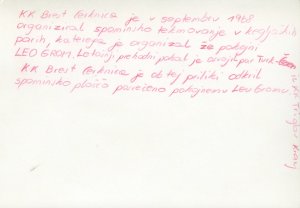 KK Brest Cerknica je v septembru 1968
organiziral spominsko tekmovanje v kegljaških
parih, katerega je organiziral že pokojni
LEO GROM. Lokalnji prehodni pokal je osvojil par Turk-
KK Brest Cerknica je ob tej priliki odkril
spominsko ploščo posvečeno pokojnemu Leu Gromu.